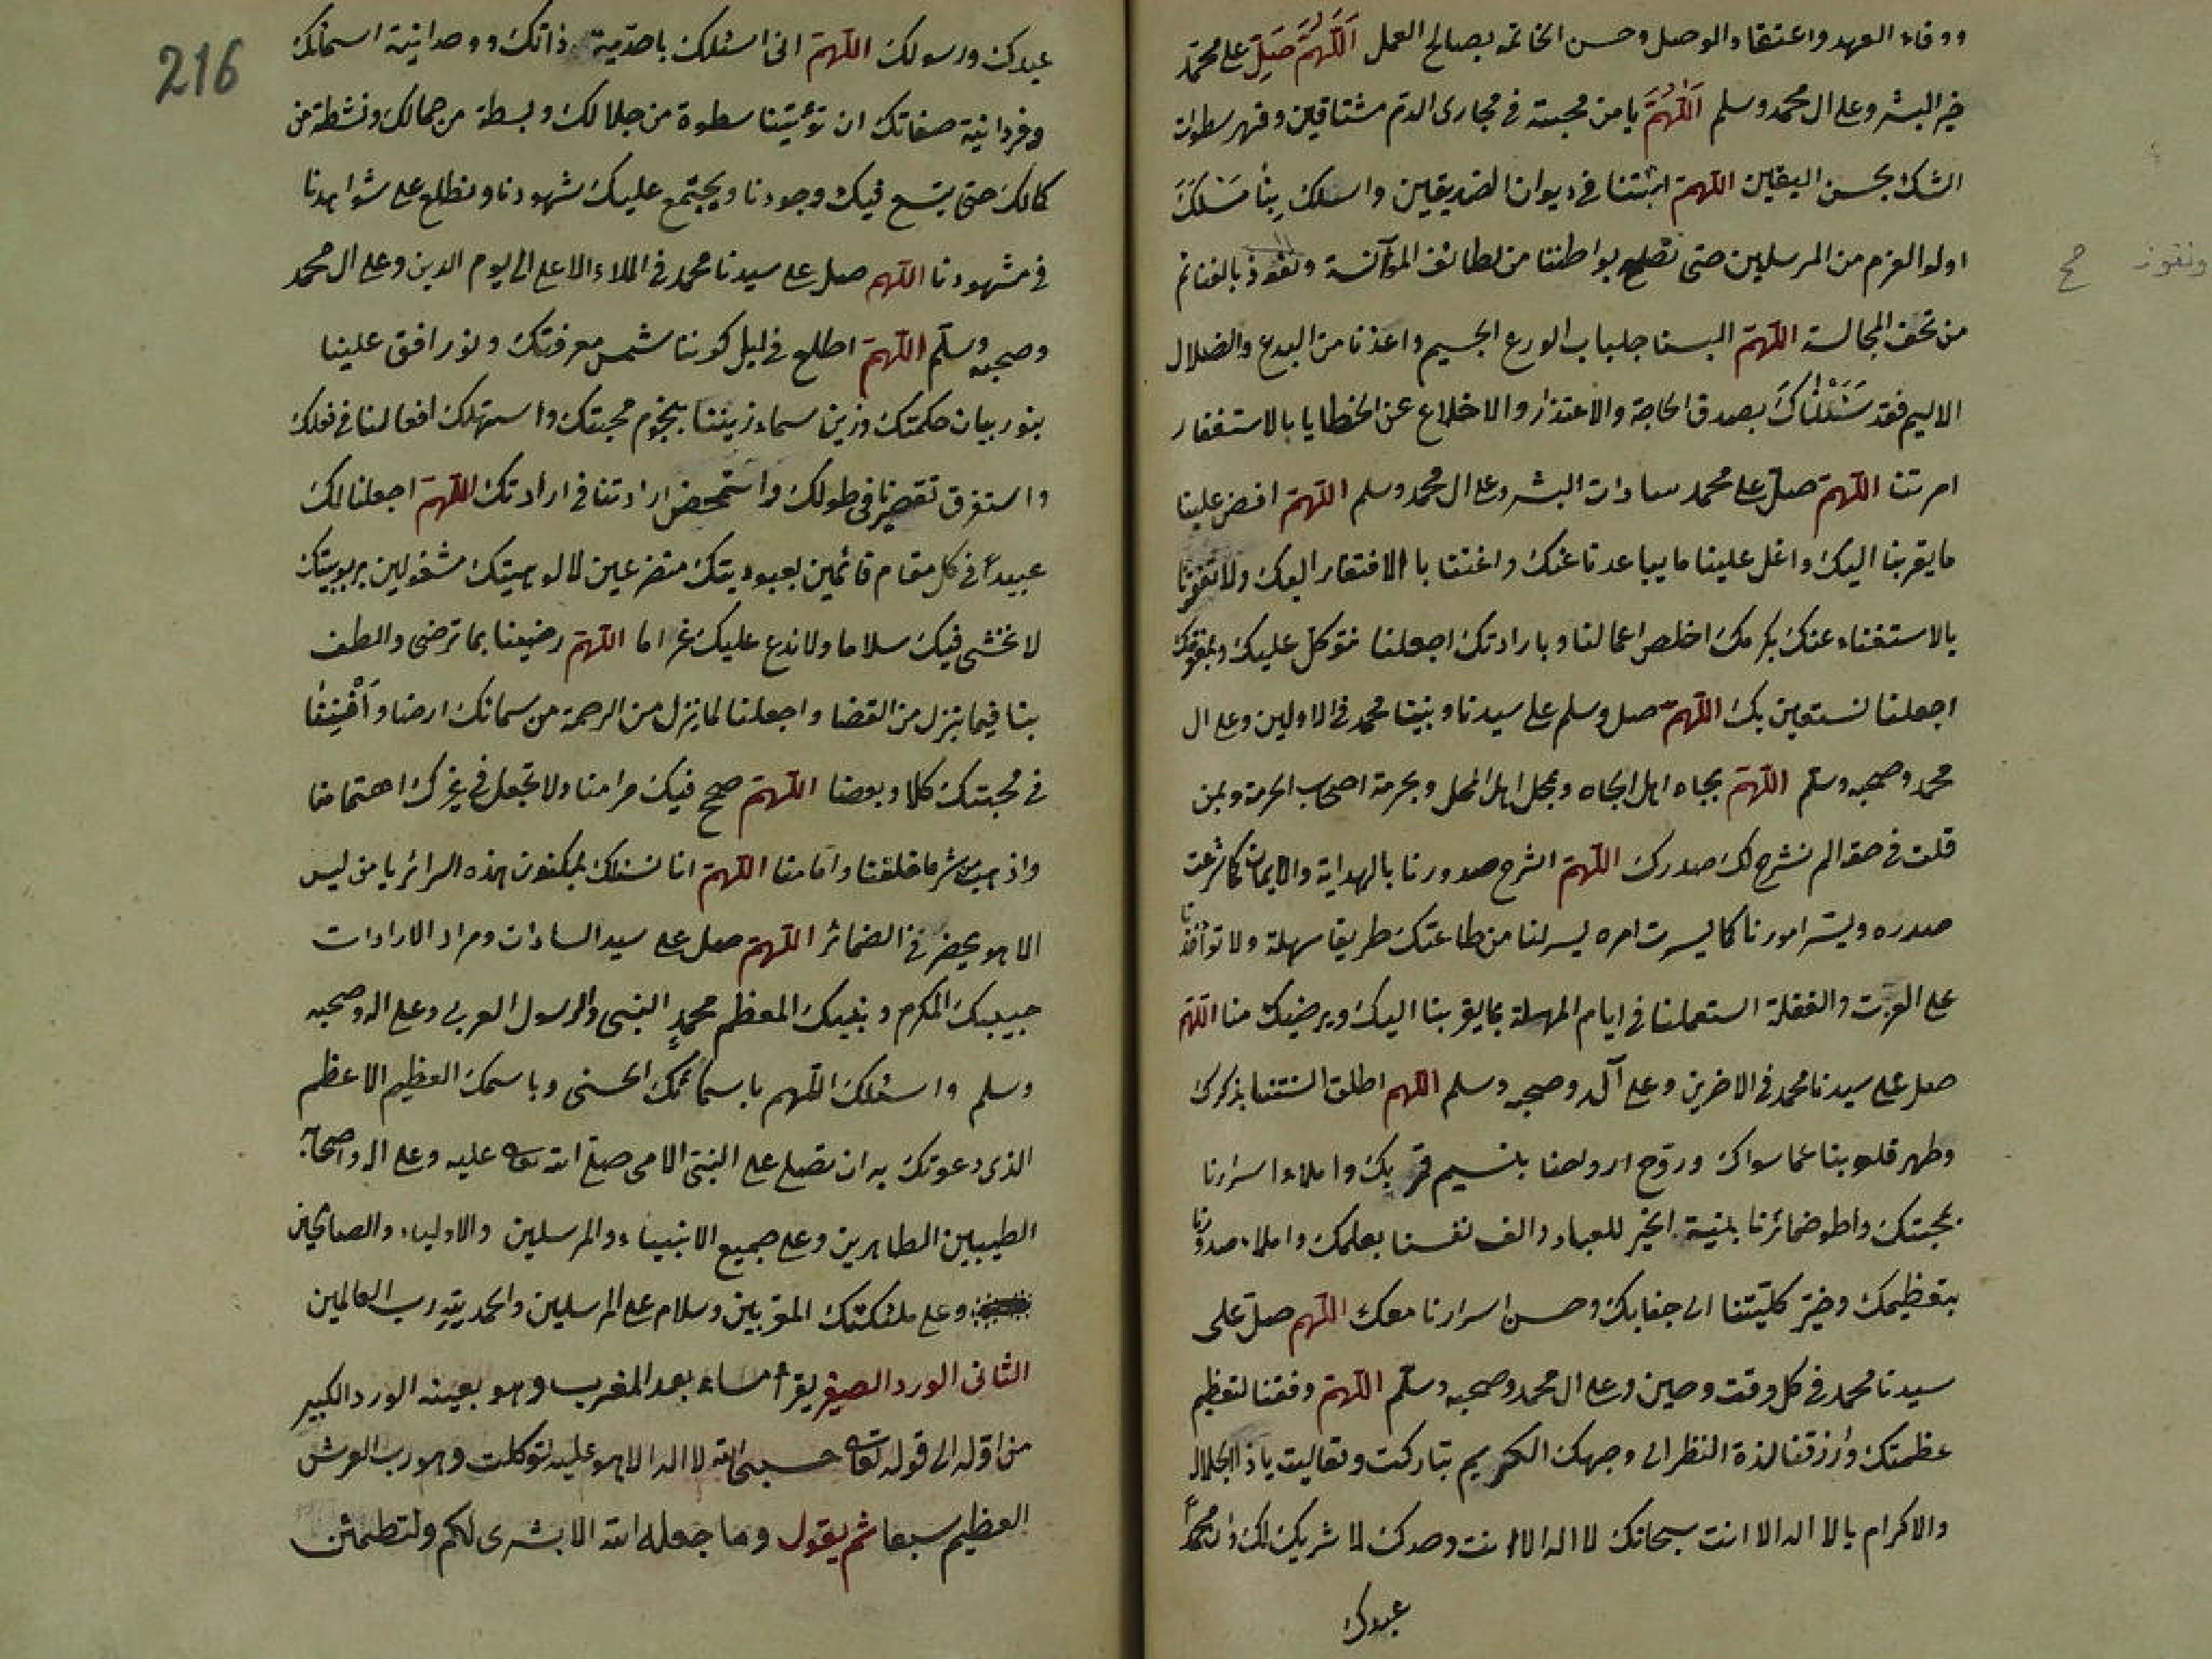 ووفاء العهد واعتقاد الوصل وحسن الخاتمه بصالح العمل اَللّٰهُمَّ صَلِّ على محمّد
خير البشر وعلى ال محمد وسلم اَللّٰهُمَّ يا من محبته في مجارى الدم مشتاقين وقهر سطوات
الشك بحسن اليقين اللّهمّ اثبتنا في ديوان الصديقين واسلك بِنَا مَسْلَكَ
اولو العزم من المرسلين حتى تصلح بواطننا من لطائف المؤآنسة ونفوذ بالغنائم
ونفوز صح
من تحف المجالسة اللّهمّ البسنا جلباب الورع الجسيم واعذنا من البدع والضلال
الاليم فقد سَئَلْنَاكَ بصدق الحاجة والاعتذار والاخلاع عن الخطايا بالاستغفار
امرتنا اللّهمّ صلّ على محمد سادات البشر وعلى ال محمد وسلم اللّهمّ افض علينا
ما يقربنا اليك واغل علينا ما يباعدنا عنك واغننا با الافتقار اليك ولا تفقرنا
بالاستغناء عنك بكرمك اخلص اعمالنا وبارادتك اجعلنا نتوكل عليك وبمعونتك
اجعلنا نستعين بك اللّهمّ صل وسلم على سيدنا ونبينا محمد في الاولين وعلى ال
محمد وصحبه وسلّم اللّهمّ بجاه اهل الجاه وبمحل اهل المحل وبحرمة اصحاب الحرمة وبمن
قلت في حقه الم نشرح لك صدرك اللّهمّ اشرح صدورنا بالهداية والايمان كما شرحت
صدره ويسّر امورنا كما يسرت امره يسر لنا من طاعتك طريقا سهلة ولا تؤاخذنا
على الغرّت والغفلة استعملنا في ايام المهملة بما يقربنا اليك ويرضيك منا اللّهمّ
صل على سيدنا محمد في الاخرين وعلى آله وصحبه وسلم اللّهم اطلق السنتنا بذكرك
وطهر قلوبنا عما سواك وروّح ارواحنا بنسيم قربك واملاء اسرارنا
بمحبتك واطو ضمائرنا بنية الخير للعباد والف نفسنا بعلمك واملاء صدورنا
بتعظيمك وخيّر كليّتنا الى جنابك وحسن اسرارنا معك اللّهم صلّ على
سيدنا محمد في كل وقت وحين وعلى ال محمد وصحبه وسلّم اللّهمّ وفقنا لتعظيم
عظمتك وارزقنا لذة النظر الى وجهك الكريم تباركت وتعاليت ياذا الجلال
والاكرام يا لا اله الا انت سبحانك لا اله الا انت وحدك لا شريك لك وان محمداً
عبدك
216
عبدك ورسولك اللّهمّ انى اسئلك باحدّية ذاتك ووحدانية اسمائك
وفردانية صفاتك ان تؤتيتنا سطوة من جلالك وبسطة من جمالك ونشطة من
كمالك حتى يتسع فيك وجودنا ويجتمع عليك شهودنا ونطلع على شواهدنا
في مشهودنا اللّهم صل على سيدنا محمد في الملاء الاعلى الى يوم الدين وعلى ال محمد
وصحبه وسلّم اللّهمّ اطلع في ليل كوننا شمس معرفتك ونور افق علينا
بنور بيان حكمتك وزين سماء زينتنا بنجوم محبتك واستهلك افعالنا في فعلك
واستغرق تقصيرنا في طولك واستمحض ارادتنا في ارادتك اللّهمّ اجعلنا لك
عبيداً في كل مقام قائمين بعبوديتك متضرعين لالوهيتك مشغولين بربوبيتك
لا نخشى فيك سلاما ولا ندع عليك غراما اللّهمّ رضينا بما ترضى والطف
بنا فيما ينزل من القضا واجعلنا لما ينزل من الرحمة من سمائك ارضا وَاَفْنِنَا
في محبتك كلا وبعضا اللّهمّ صحح فيك مرامنا ولا تجعل في غيرك اهتمامنا
واذهب من شر ما خلفنا وامامنا اللّهمّ انا نسئلك بمكنون هذه السرائر يا من ليس
الا هو يحضر في الضمائر اللّهمّ صل على سيد السادات ومراد الارادات
حبيبك المكرم ونبيك المعظم محمدٍ النبى والرسول العربى وعلى اله وصحبه
وسلم واسئلك اللّهم باسمائك الحسنى وباسمك العظيم الاعظم
الذى دعوتك به ان تصلى على النبىّ الامى صلى الله تعالى عليه وعلى اله واصحابه
الطيبين الطاهرين وعلى جميع الانبياء والمرسلين والاولياء والصالحين
وعلى ملئكتك المقربين وسلام على المرسلين والحمد لله رب العالمين
الثانى الورد الصغير يقرأ مساء بعد المغرب وهو بعينه الورد الكبير
من اوله الى قوله تعالى حسبى الله لا اله الا هو عليه توكلت وهو رب العرش
العظيم سبعا ثم يقول وما جعله الله الا بشرى لكم ولتطمئن